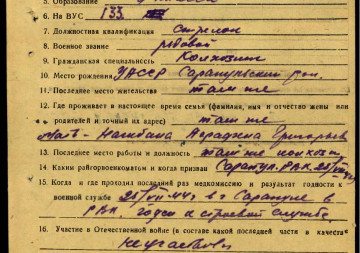 5. Образование
6. На ВУС 133
7. Должностная квалификация стрелок
8. Военное звание рядовой
9. Гражданская специальность Колхозник
10. Место рождения УАССР Сарапульский рон.
11. Последнее место жительства там же
12. Где проживает в настоящее время семья (фамилия, имя и отчество жены или
родителей и точный их адрес) там же
Мать-
13. Последнее место работы и должность там же колхоз
14. Каким райгорвоенкоматом и когда призван Сарапул. РВК 25/VII-44
15. Когда и где проходил последний раз медкомиссию и результат годности к
военной службе 25/VII-44г в г Сарапуле в
РВК. годен к строевой службе
16. Участие в Отечественной войне (в составе какой последней части и в качестве
не участвовал